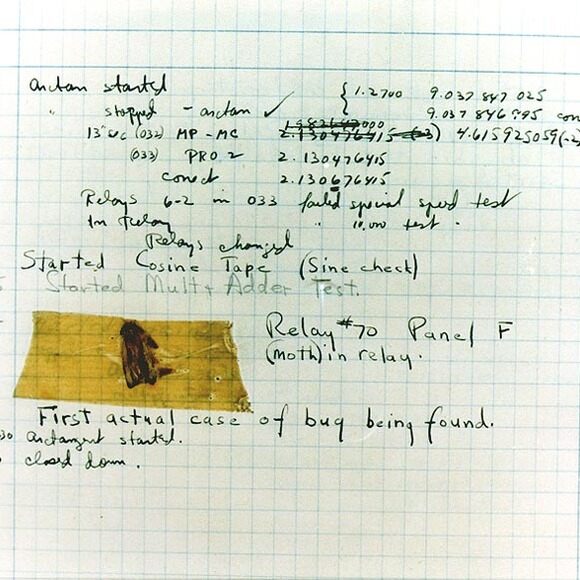 arctan started { 1.2700 9.037 847 025
" stopped - arctan ✓ 9.037 846 995 con
13"uc (032) MP - MC 2.130476415 (-3) 4.615925059(-2)
(033) PRO 2 2.130476415
conect 2.130676415
Relays 6-2 in 033 failed special speed test
In Relay " 10,000 test .
Relays changed
Started Cosine Tape (Sine check)
Started Mult+ Adder Test.
Relay #70 Panel F
(moth) in relay.
First actual case of bug being found.
arctangent started.
closed down .